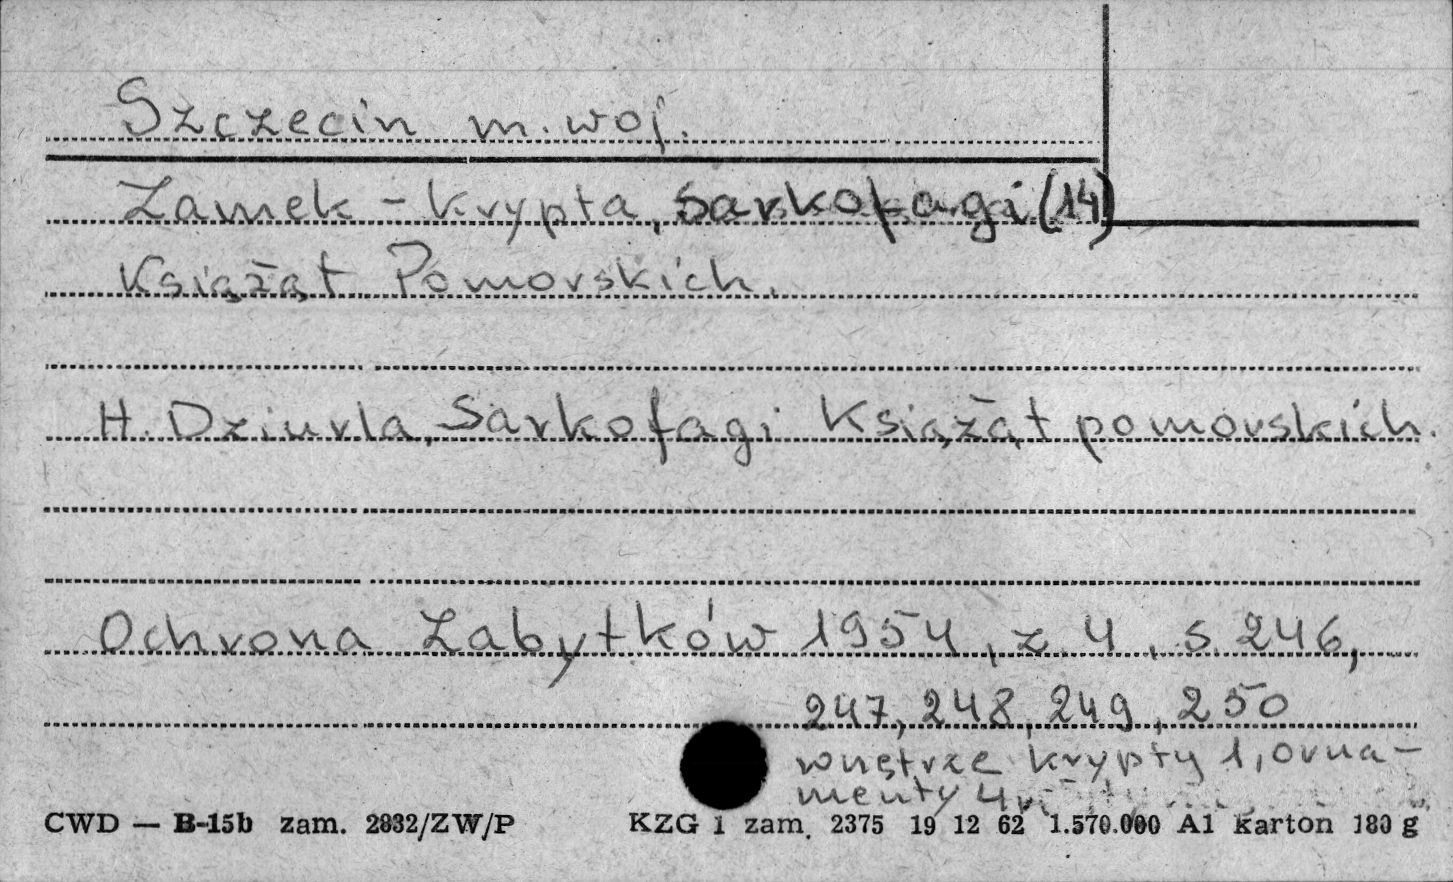 Szczecin m. woj.
Zamek - krypta, sarkofagi (14)
Książąt Pomorskich.
H. Dziurla, Sarkofagi Książąt pomorskich.
Ochrona Zabytków 1954, z. 4, s. 246,
247, 248, 249, 250
wnętrze krypty 1, orna-
menty 4
CWD — B-15b zam. 2832/ZW/P KZG 1 zam. 2375 19 12 62 1.570.000 A1 karton 180 g